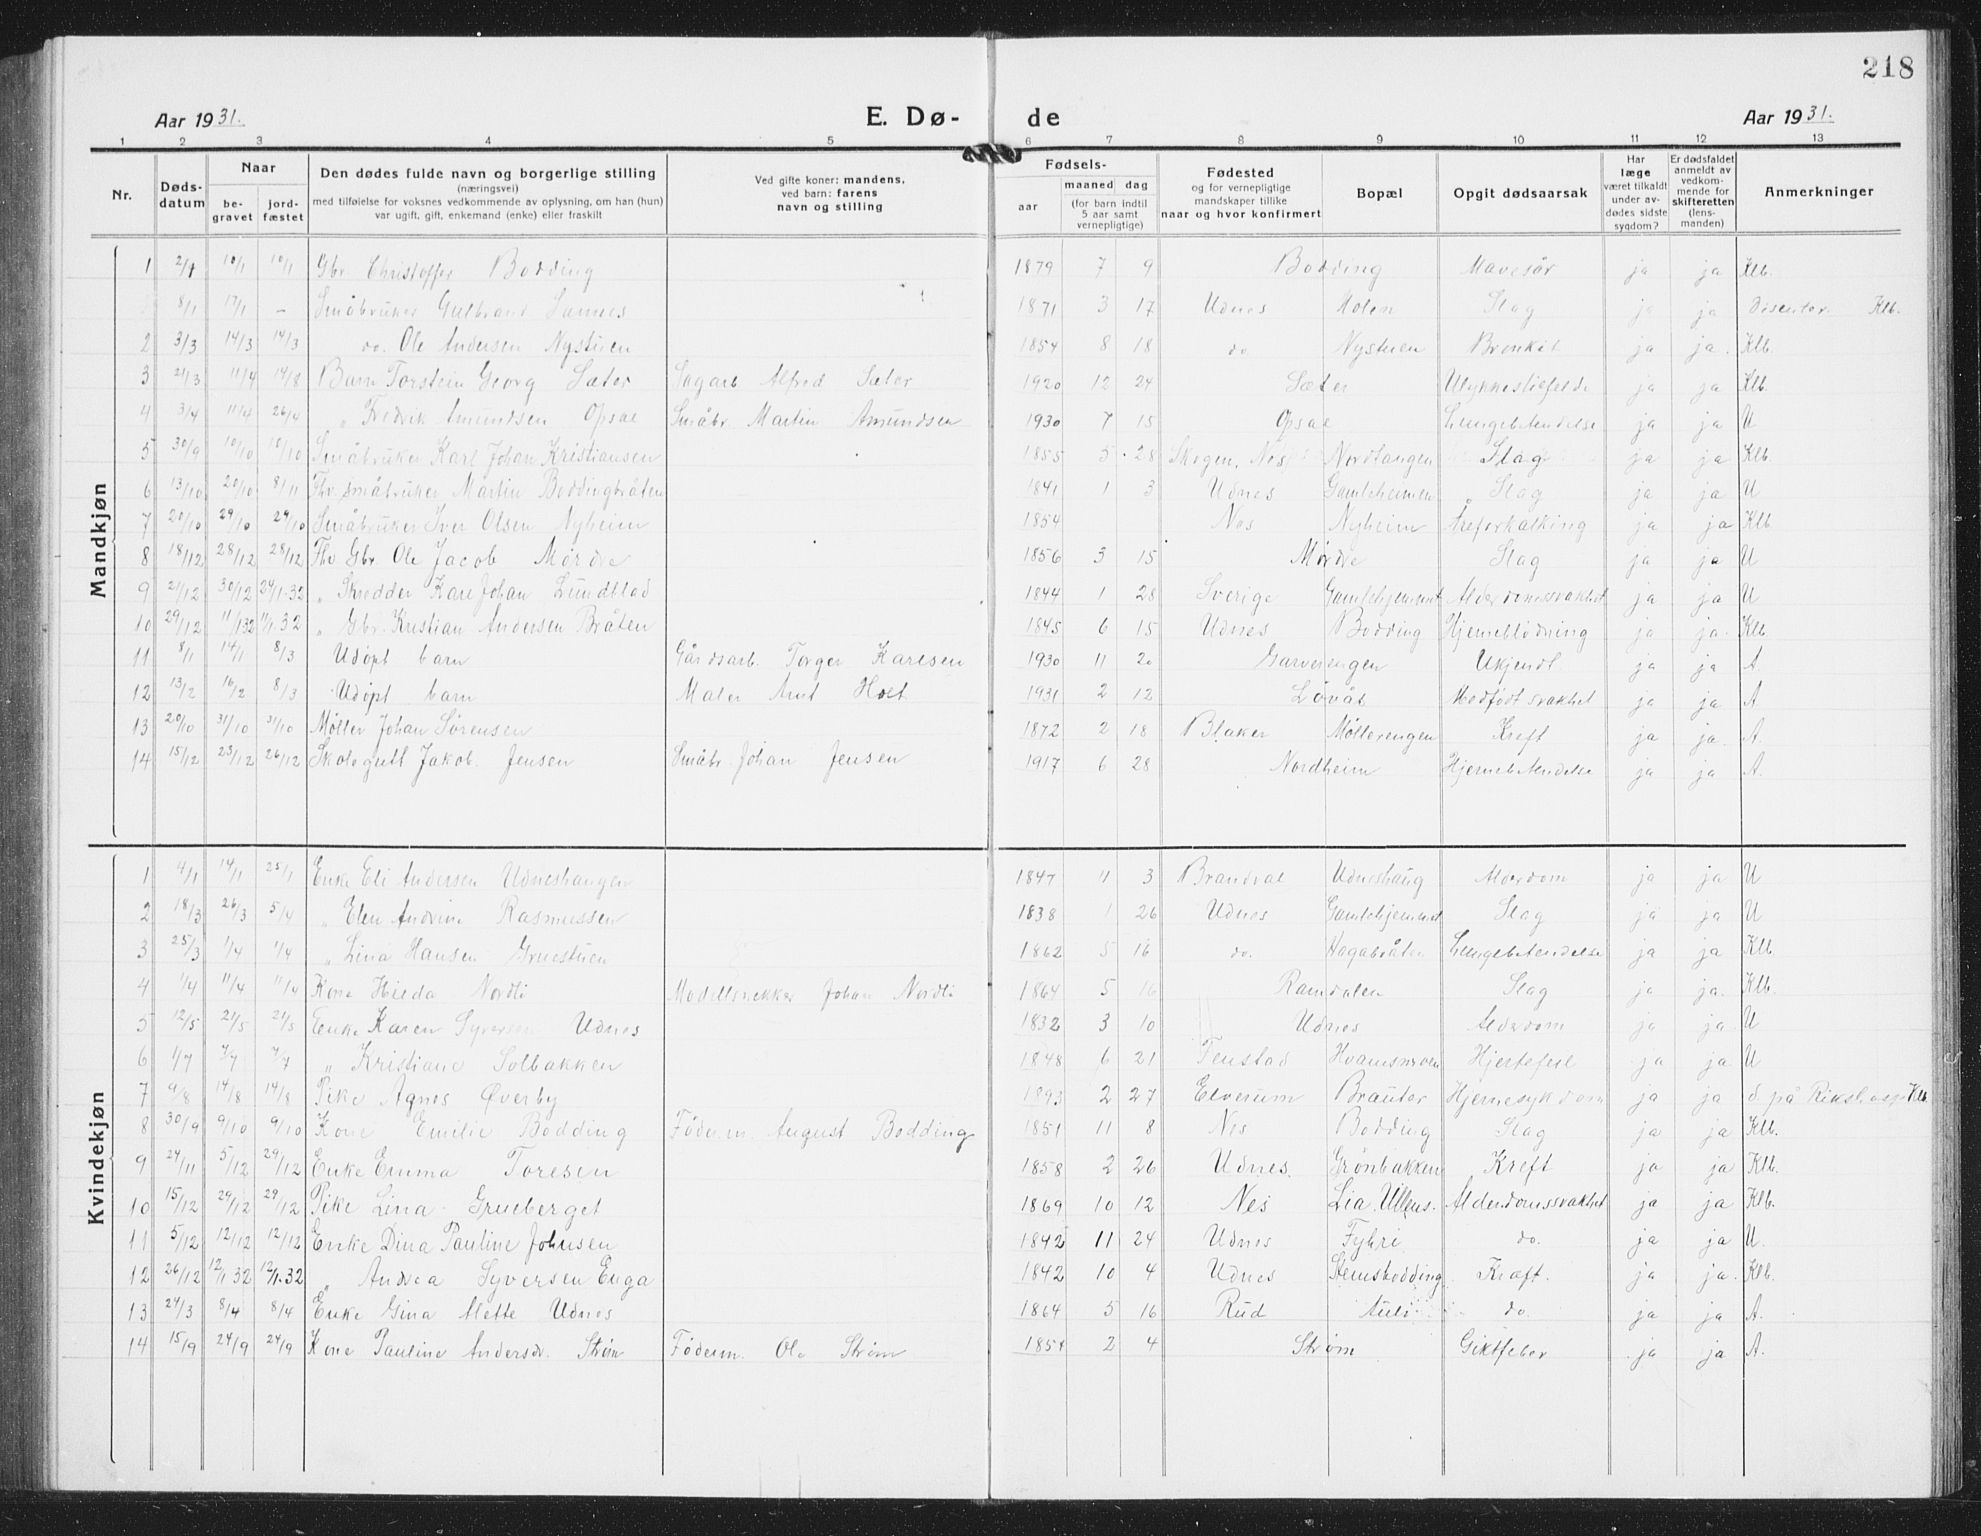 218
Aar 1931. E. Dø- de Aar 1931.
1 2 3 4 5 6 7 8 9 10 11 12 13
Nr. Døds-datum Naar be-gravet jord-fæstet Den dødes fulde navn og borgerlige stilling (næringsvei) med tilføielse for voksnes vedkommende av oplysning, om han (hun) var ugift, gift, enkemand (enke) eller fraskilt Ved gifte koner: mandens, ved barn: farens navn og stilling Fødsels- aar maaned dag (for barn indtil 5 aar samt vernepligtige) Fødested og for vernepligtige mandskaper tillike naar og hvor konfirmert Bopæl Opgit dødsaarsak Har læge været tilkaldt under av-dødes sidste sygdom? Er dødsfaldet anmeldt av vedkom-mende for skifteretten (lens-manden) Anmerkninger
Mandkjøn
1 2/1 10/1 10/1 Gbr Christoffer Bodding 1879 7 9 Bodding Mavesår ja ja Klb.
8/1 17/1 - Småbruker Gulbrand 1871 3 17 Udnes Holen Slag ja ja Disenter. Klb.
2 3/3 14/3 14/3 do. Ole Andersen Nystuen 1854 8 18 do Nystuen Bronkit ja ja. Klb.
3 21/3 11/4 14/8 Barn Torstein Georg Sæter Sagarb Alfred Sæter 1920 12 24 Sæter Ulykkestilfelde ja ja Klb.
4 3/4 11/4 26/4 „ Fredrik Amundsen Opsal Småbr. Martin Amundsen 1930 7 15 Opsal Lungebetendelse ja ja U
5 30/9 10/10 10/10 Småbruker Karl Johan Kristiansen 1855 5 28 Skogen, Nes Nordtangen Slag ja ja Klb.
6 13/10 20/10 8/11 Fhv. småbruker Martin Boddingbråten 1841 1 3 Udnes Gamleheimen „ Slag ja ja U
7 20/10 29/10 29/10 Småbruker Iver Olsen Nyheim 1854 Nes Nyheim Åreforkalking ja ja Klb
8 18/12 28/12 28/12 Fhv Gbr Ole Jacob Mørdre 1856 3 15 Mørdre Slag ja ja U
9 21/12 30/12 24/1.32 „ Skredder Karl Johan Lundblad 1844 1 28 Sverige Gamlehjemmet Alderdomssvakhet ja ja U
10 29/12 11/1 32 11/1.32 „ Gbr. Kristian Andersen Bråten 1845 6 15 Udnes Bodding Hjerneblödning ja ja. Klb
11 8/1 14/1 8/3 Udøpt barn Gårdsarb. Torger Karlsen 1930 11 20 Garverengen Ukjendt ja ja A.
12 13/2 16/2 8/3 Udøpt barn Maler Arnt Holt 1931 2 12 Lövås Medfödt svakhet ja ja A
13 20/10 31/10 31/10 Møller Johan Sørensen 1872 2 18 Blaker Møllerengen Kreft ja ja. A.
14 15/12 23/12 26/12 Skolegutt Jakob Jensen Småbr. Johan Jensen 1917 6 28 Nordheim Hjernebetendelse ja ja A.
Kvindekjøn
1 4/1 14/1 25/1 Enke Eli Andersen Udneshaugen 1847 11 3 Brandval Udneshaug Alderdom ja ja U
2 18/3 26/3 5/4 „ Elen Andrine Rasmussen 1838 1 26 Udnes Gamlehjemmet Slag ja ja U
3 25/3 1/4 1/4 „ Lina Hansen Gruestuen 1862 5 16 do. Hagabråten Lungebetendelse ja ja Klb
4 1/4 11/4 11/4 Kone Hilda Nordli Modellsnekker Johan Nordli 1864 5 16 Ramdalen Slag ja ja. Klb.
5 12/5 21/5 21/5 Enke Karen Syversen Udnes 1832 3 10 Udnes Alderdom ja ja U
6 1/7 7/7 7/7 „ Kristiane Solbakken 1848 6 21 Fenstad Hvamsmoen Hjertefeil ja ja U
7 9/8 14/8 14/8 Pike Agnes Øverby 1893 2 27 Elverum Brauter Hjernesykdom ja ja d. på Rikshosp. Klb.
8 30/9 9/10 9/10 Kone Emilie Bodding Föderm. August Bodding 1851 11 8 Nes Bodding Slag ja ja Klb.
9 24/11 5/12 29/12 Enke Emma Toresen 1858 2 26 Udnes. Grönbakken Kreft ja ja Klb.
10 15/12 29/12 29/12 Pike Lina Grueberget 1869 10 12 Nes Lia, Ullens. Alderdomssvakhet ja ja Klb.
11 5/12 12/12 12/12 Enke Dina Pauline Johnsen 1842 11 24 Udnes Fyhri do. ja ja U.
12 26/12 12/1 32 12/1.32 „ Andrea Syversen Enga 1842 10 4 Udnes Stemsbodding Kræft. ja ja. Klb.
13 24/3 8/4 8/4 Enke Gina Mette Udnes 1864 5 16 Rud Auli do ja ja A.
14 15/9 24/9 24/9 Kone Pauline Andersdr. Strøm Föderm. Ole Strøm 1854 2 4 Strøm Giktfeber ja ja A.